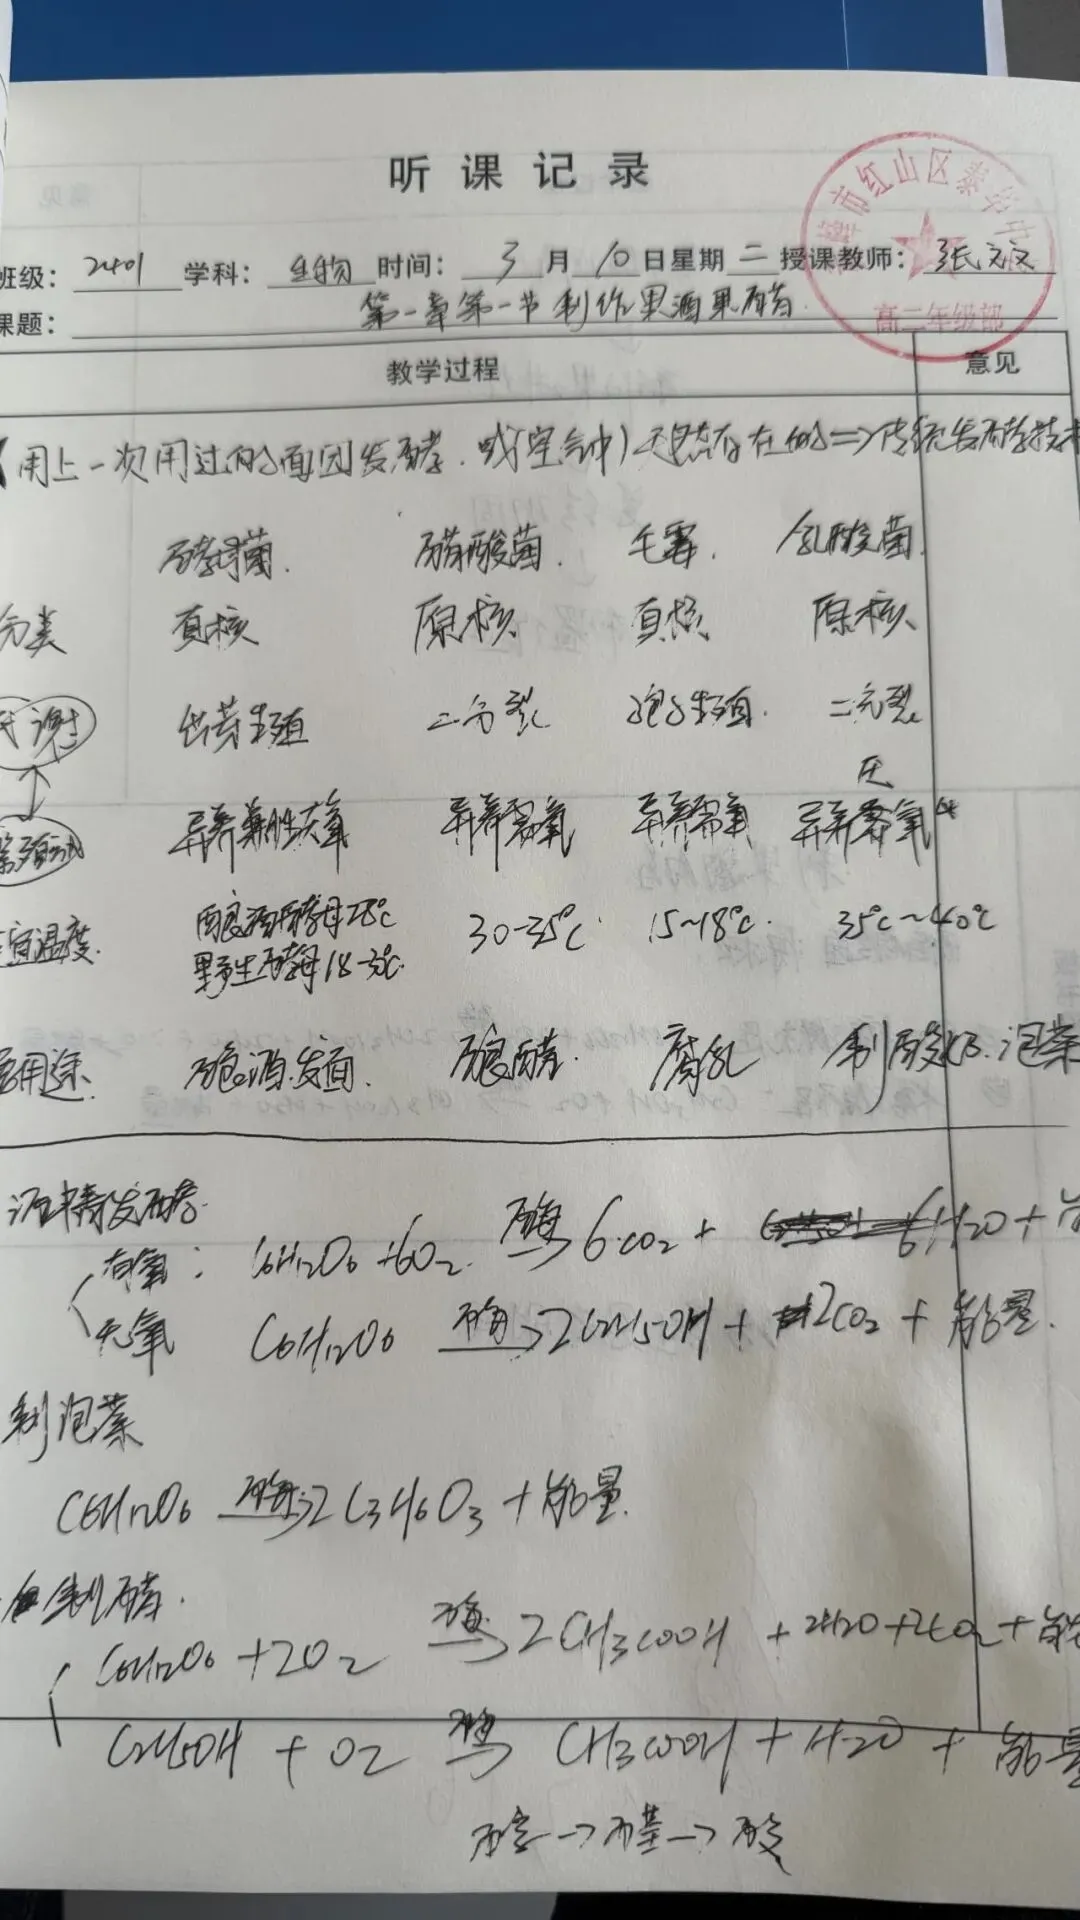 听课记录
班级：2401 学科：生物 时间：3月10日星期二 授课教师：张文文
课题：第一章第一节制作果酒果醋.
市红山区泰华中
高二年级部
教学过程 意见
用上一次用过的面团发酵.或(空气中)天然存在的=>传统发酵技术
酵母菌. 醋酸菌. 毛霉. 乳酸菌.
分类 真核 原核 真核 原核
谢 出芽生殖 二分裂 孢子生殖. 二分裂
厌
异养兼性厌氧 异养需氧 异养需氧 异养 氧
宜温度. 酿酒酵母28℃ 30-35℃ 15~18℃ 35℃~40℃
野生酵母18-3℃
用途 酒.发面. 酿醋. 腐乳 制酸奶.泡菜
酒精发酵.
有氧： C6H12O6+6O2 酶→ 6CO2+ 6H2O+
无氧 C6H12O6 酶→2C2H5OH+2CO2+能量.
制泡菜
C6H12O6 酶→2C3H6O3+能量.
制醋.
C6H12O6+2O2 酶→2CH3COOH+2H2O+2CO2+能
C2H5OH+O2 酶→ CH3COOH+H2O+能量
醇→醛→酸